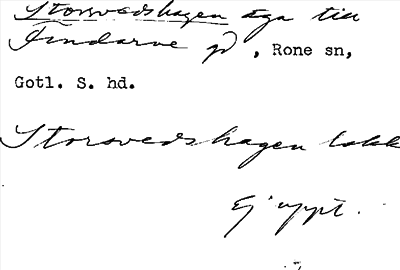 Storsvedshagen äga till
Findarve gd, Rone sn,
Gotl. S. hd.
Storsvedshagen lokk
Ej uppt.